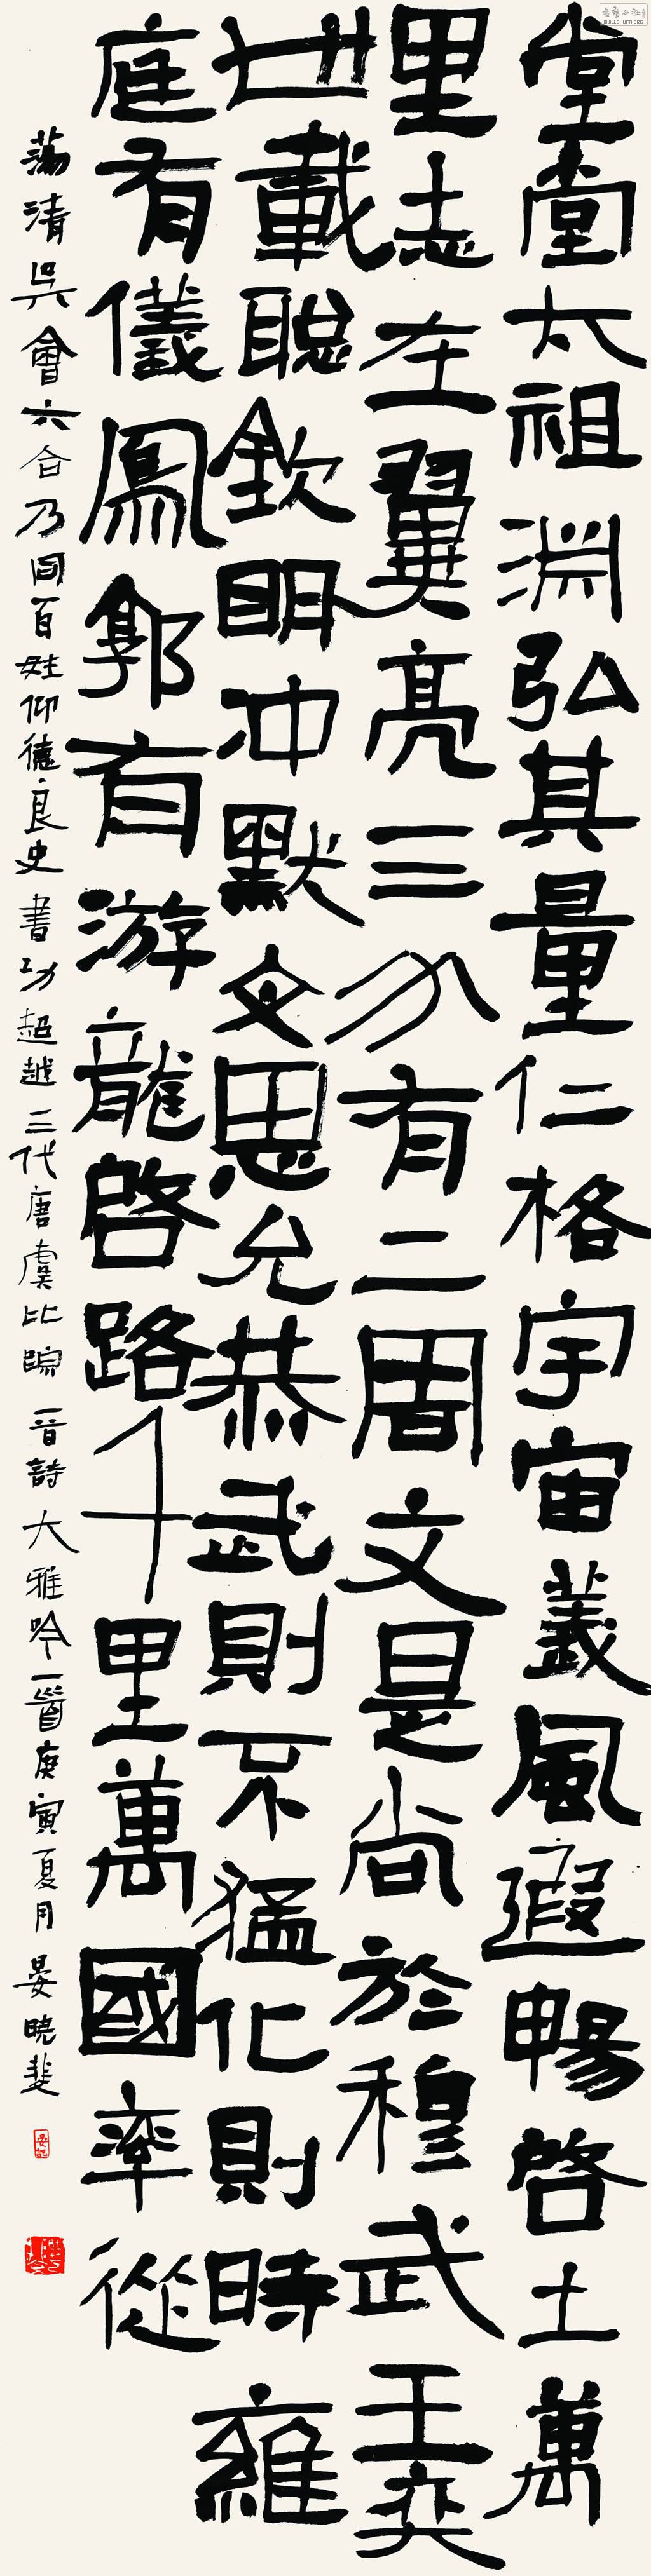 堂堂太祖淵弘其量仁格宇宙義風遐暢啓土萬
里志在翼亮三分有二周文是尚於穆武王奕
世載聰欽明沖默文思允恭武則不猛化則時雍
庭有儀鳳郭有游龍啓路千里萬國率從
蕩清吳會六合乃同百姓仰德良史書功超越三代唐虞比蹤 晉詩大雅吟一首庚寅夏月晏曉斐
WWW.SHUFA.ORG